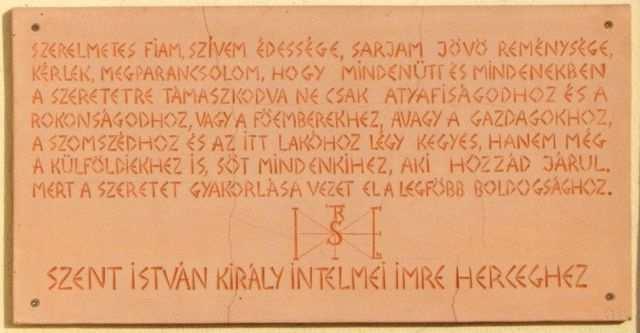 SZERELMETES FIAM, SZÍVEM ÉDESSÉGE, SARJAM JÖVŐ REMÉNYSÉGE,
KÉRLEK, MEGPARANCSOLOM, HOGY MINDENÜTT ÉS MINDENEKBEN
A SZERETETRE TÁMASZKODVA NE CSAK ATYAFISÁGODHOZ ÉS A
ROKONSÁGODHOZ, VAGY A FŐEMBEREKHEZ, AVAGY A GAZDAGOKHOZ,
A SZOMSZÉDHOZ ÉS AZ ITT LAKÓHOZ LÉGY KEGYES, HANEM MÉG
A KÜLFÖLDIEKHEZ IS, SŐT MINDENKIHEZ, AKI HOZZÁD JÁRUL.
MERT A SZERETET GYAKORLÁSA VEZET EL A LEGFŐBB BOLDOGSÁGHOZ.
SZENT ISTVÁN KIRÁLY INTELMEI IMRE HERCEGHEZ